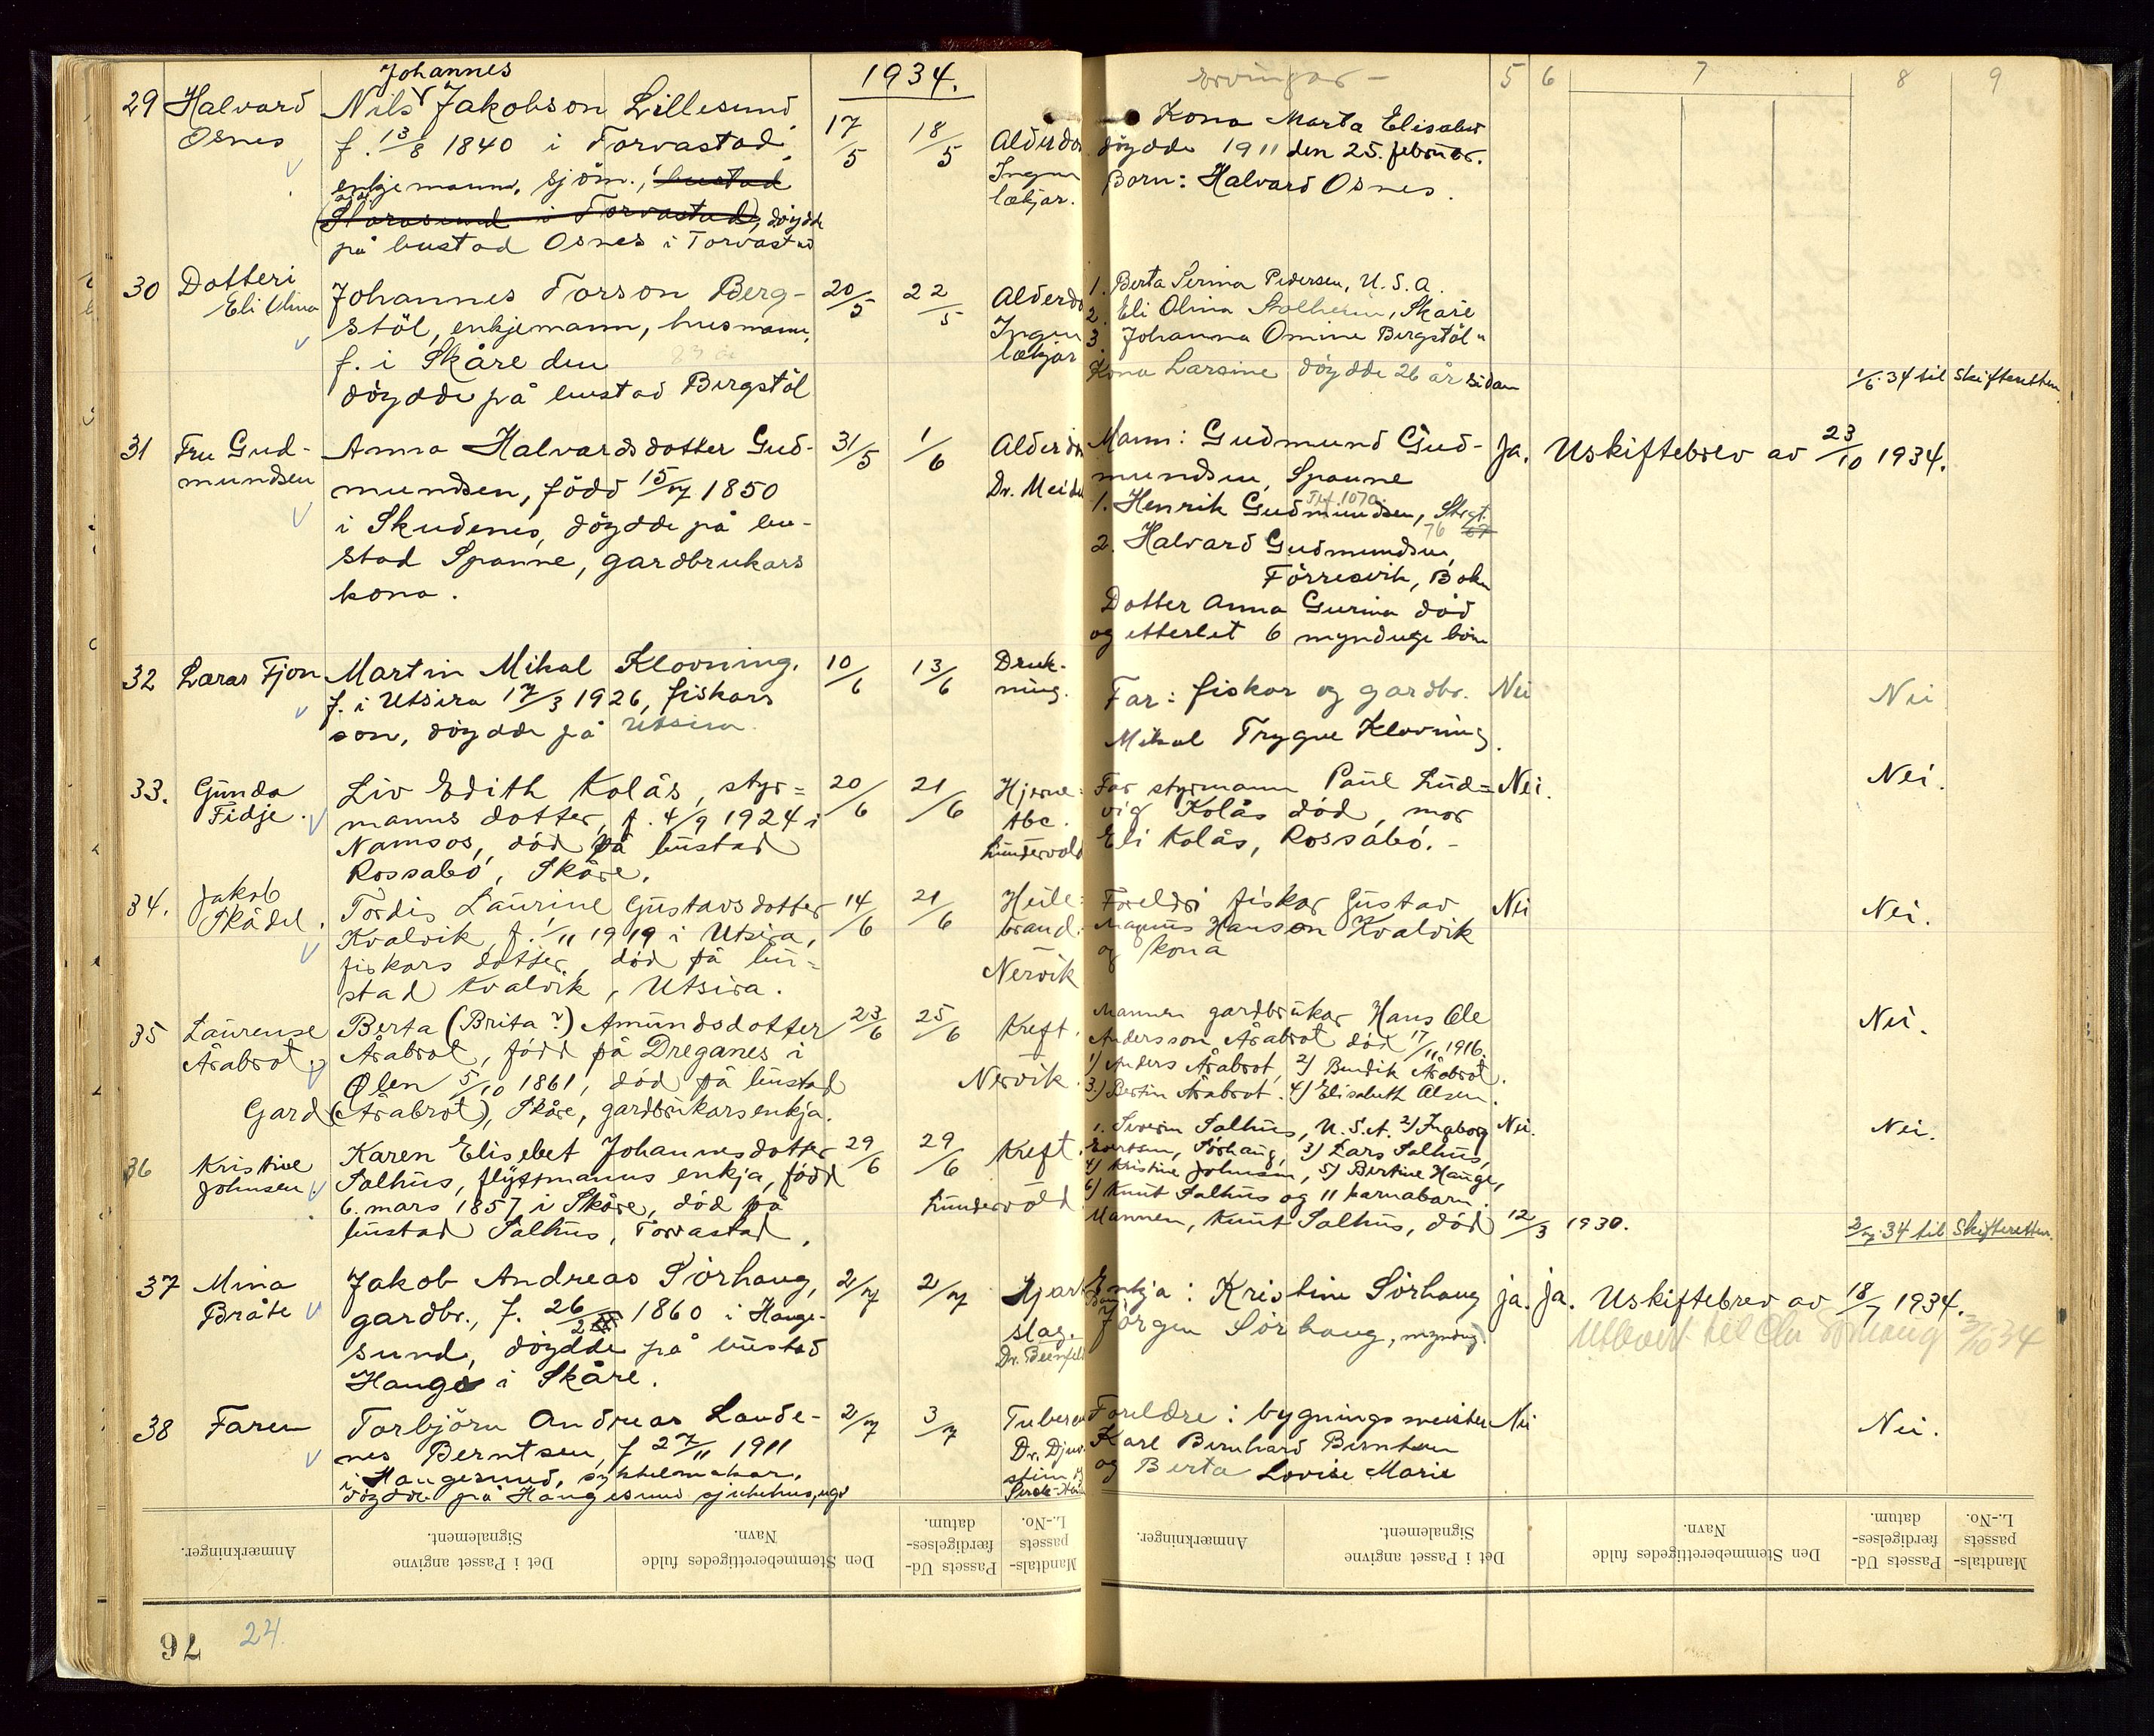 1934.
ervingar -
5 6 7 8 9
29 Halvard
Osnes
Johannes
Nils Jakobson Lillesund
f. 13/8 1840 i Torvastad,
enkjemann, sjöm., bustad
Storasund i Torvastad, döydde
på bustad Osnes i Torvastad
17/5 18/5
Alderdo
Ingen
lækjar.
Kona Marta Elisabet
döydde 1911 den 25. februar.
Born: Halvard Osnes.
30 Dotteri
Eli Olina
Johannes Torson Berg-
stöl, enkjemann, husmann,
f. i Skåre den 83 år
döydde på bustad Bergstöl
20/5 22/5
Alderdo
Ingen
lækjar
1. Berta Serina Pedersen, U.S.A.
2. Eli Olina Stolheim, Skåre
3. Johanna Omine Bergstöl "
Kona Larsine döydde 26 år sidan
1/6.34 til Skifteretten.
31 Fru Gud-
mundsen
Anna Halvardsdotter Gud-
mundsen, född 15/7 1850
i Skudenes, döydde på bu-
stad Spanne, gardbrukars
kona.
31/5 1/6
Alderdo
Dr. Meide
Mann: Gudmund Gud-
mundsen, Spanne
1. Henrik Gudmundsen, Strgt.
Tlf. 1070
76 67
2. Halvard Gudmundsen,
Förresvik, Bokn
Dotter Anna Gurina död
og etterlet 6 mynduge born
Ja. Uskiftebrev av 23/10 1934.
32 Læras Fjon
Martin Mikal Klovning,
f. i Utsira 17/3 1926, fiskars
son, döydde på Utsira.
10/6 13/6
Druk-
ning.
Far: fiskar og gardbr.
Mikal Trygve Klovning.
Nei
Nei
33. Gunda
Fidje.
Liv Edith Kolås, styr=
manns dotter, f. 4/9 1924 i
Namsos, död på bustad
Rossabö, Skåre.
20/6 21/6
Hjerne-
abc.
Lundervold
Far styrmann Paul Lud=
vig Kolås död, mor
Eli Kolås, Rossabö. -
Nei.
Nei.
34. Jakob
Skådel.
Tordis Laurine Gustavsdotter
Kvalvik, f. 1/11 1919 i Utsira,
fiskars dotter, död på bu=
stad Kvalvik, Utsira.
14/6 21/6
Heile-
brand.
Nervik
Foreldri fiskar Gustav
Magnus Hanson Kvalvik
og kona
Nei
Nei.
35 Laurense
Årabrot
Berta (Brita?) Amundsdotter
Årabrot, född på Dreganes i
Ølen 5/10 1861, död på bustad
Gard (Årabrot), Skåre, gardbrukarsenkja.
23/6 25/6
Kreft.
Nervik.
Mannen gardbrukar Hans Ole
Andersson Årabrot död 17/11 1916.
1) Anders Årabrot, 2) Bendik Årabrot.
3) Bertin Årabrot. 4) Elisabeth Olsen.
Nei.
36 Kristine
Johnsen
Karen Elisebet Johannesdotter
Salhus, flyttmanns enkja, född
6. mars 1857 i Skåre, död på
bustad Salhus, Torvastad.
29/6 29/6
Kreft.
Lundervold
1. Severin Salhus, U.S.A. 2) Ingeborg
Evertsen, Sörhaug, 3) Lars Salhus,
4) Kristine Johnsen, 5) Bertine Hauge,
6) Knut Salhus og 11 barnabarn.
Mannen, Knut Salhus, död 12/3 1930.
Nei.
Nei.
2/7.34 til Skifteretten.
37 Mina
Bråte
Jakob Andreas Sörhaug,
gardbr., f. 26/2 1860 i Hauge-
sund, döydde på bustad
Hauge i Skåre.
2/7 2/7
Hjart
slag.
Enkja: Kristine Sörhaug
Jörgen Sörhaug, myndig
ja. ja. Uskiftebrev av 18/7 1934.
Utlevert til Ola Sörhaug 3/10 34
38 Faren
Torbjörn Andreas Lande-
nes Berntsen, f 27/11 1911
i Haugesund, sykkelmakar,
döydde på Haugesund sjukehus, ugi
2/7 3/7
Tuberku
Foreldre: bygningsmeister
Karl Bernhard Berntsen
og Berta Lovise Marie
Nei
Nei.
Anmærkninger.
Det i Passet angivne
Signalement.
Den Stemmeberettigedes fulde
Navn.
Passets Ud-
færdigelses-
datum.
Mandtals-
passets
L.-No.
Anmærkninger.
Det i Passet angivne
Signalement.
Den Stemmeberettigedes fulde
Navn.
Passets Ud-
færdigelses-
datum.
Mandtals-
passets
L.-No.
76 24.